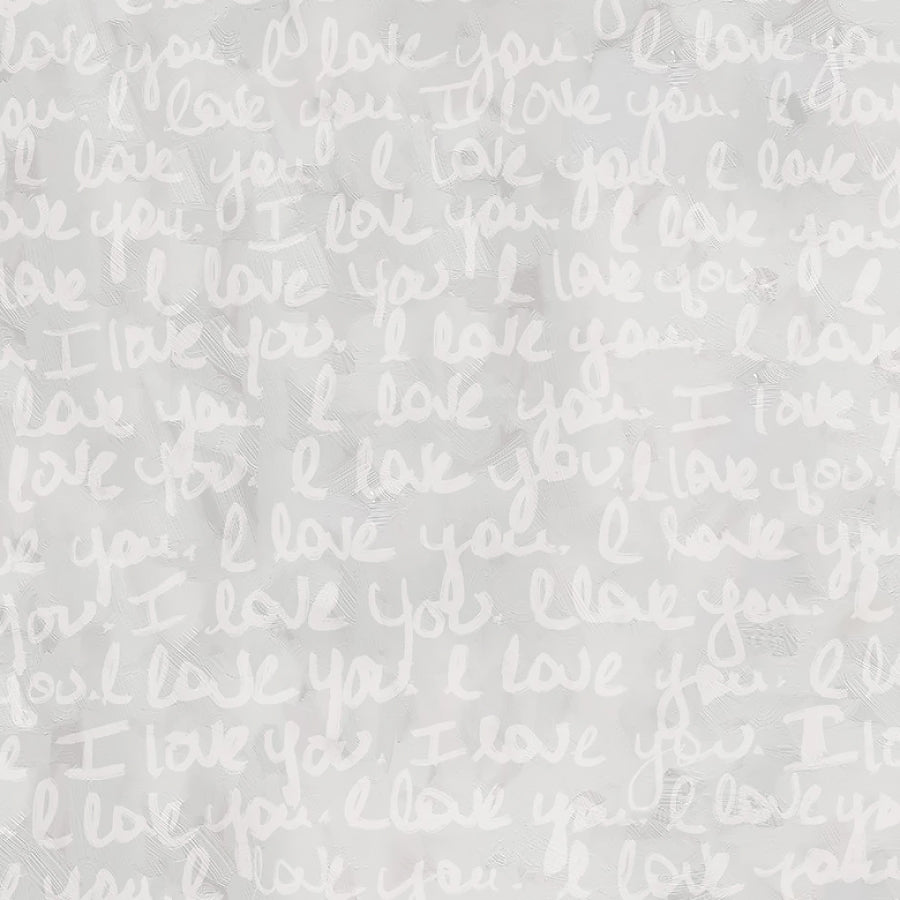 love you. I love you. I love you
you. I love you. I love you. I love
I love you. I love you. I love y
ove you. I love you. I love you.
love I love you I love you. I
. I love you. I love you. I love
love you. I love you. I love y
love you. I love you. I love you.
ve you. I love you. I love you
you. I love you. I love you. I
you. I love you. I love you. I l
e I love you. I love you. I lo
I love you. I love you. I love yo
you. I love you. I love you